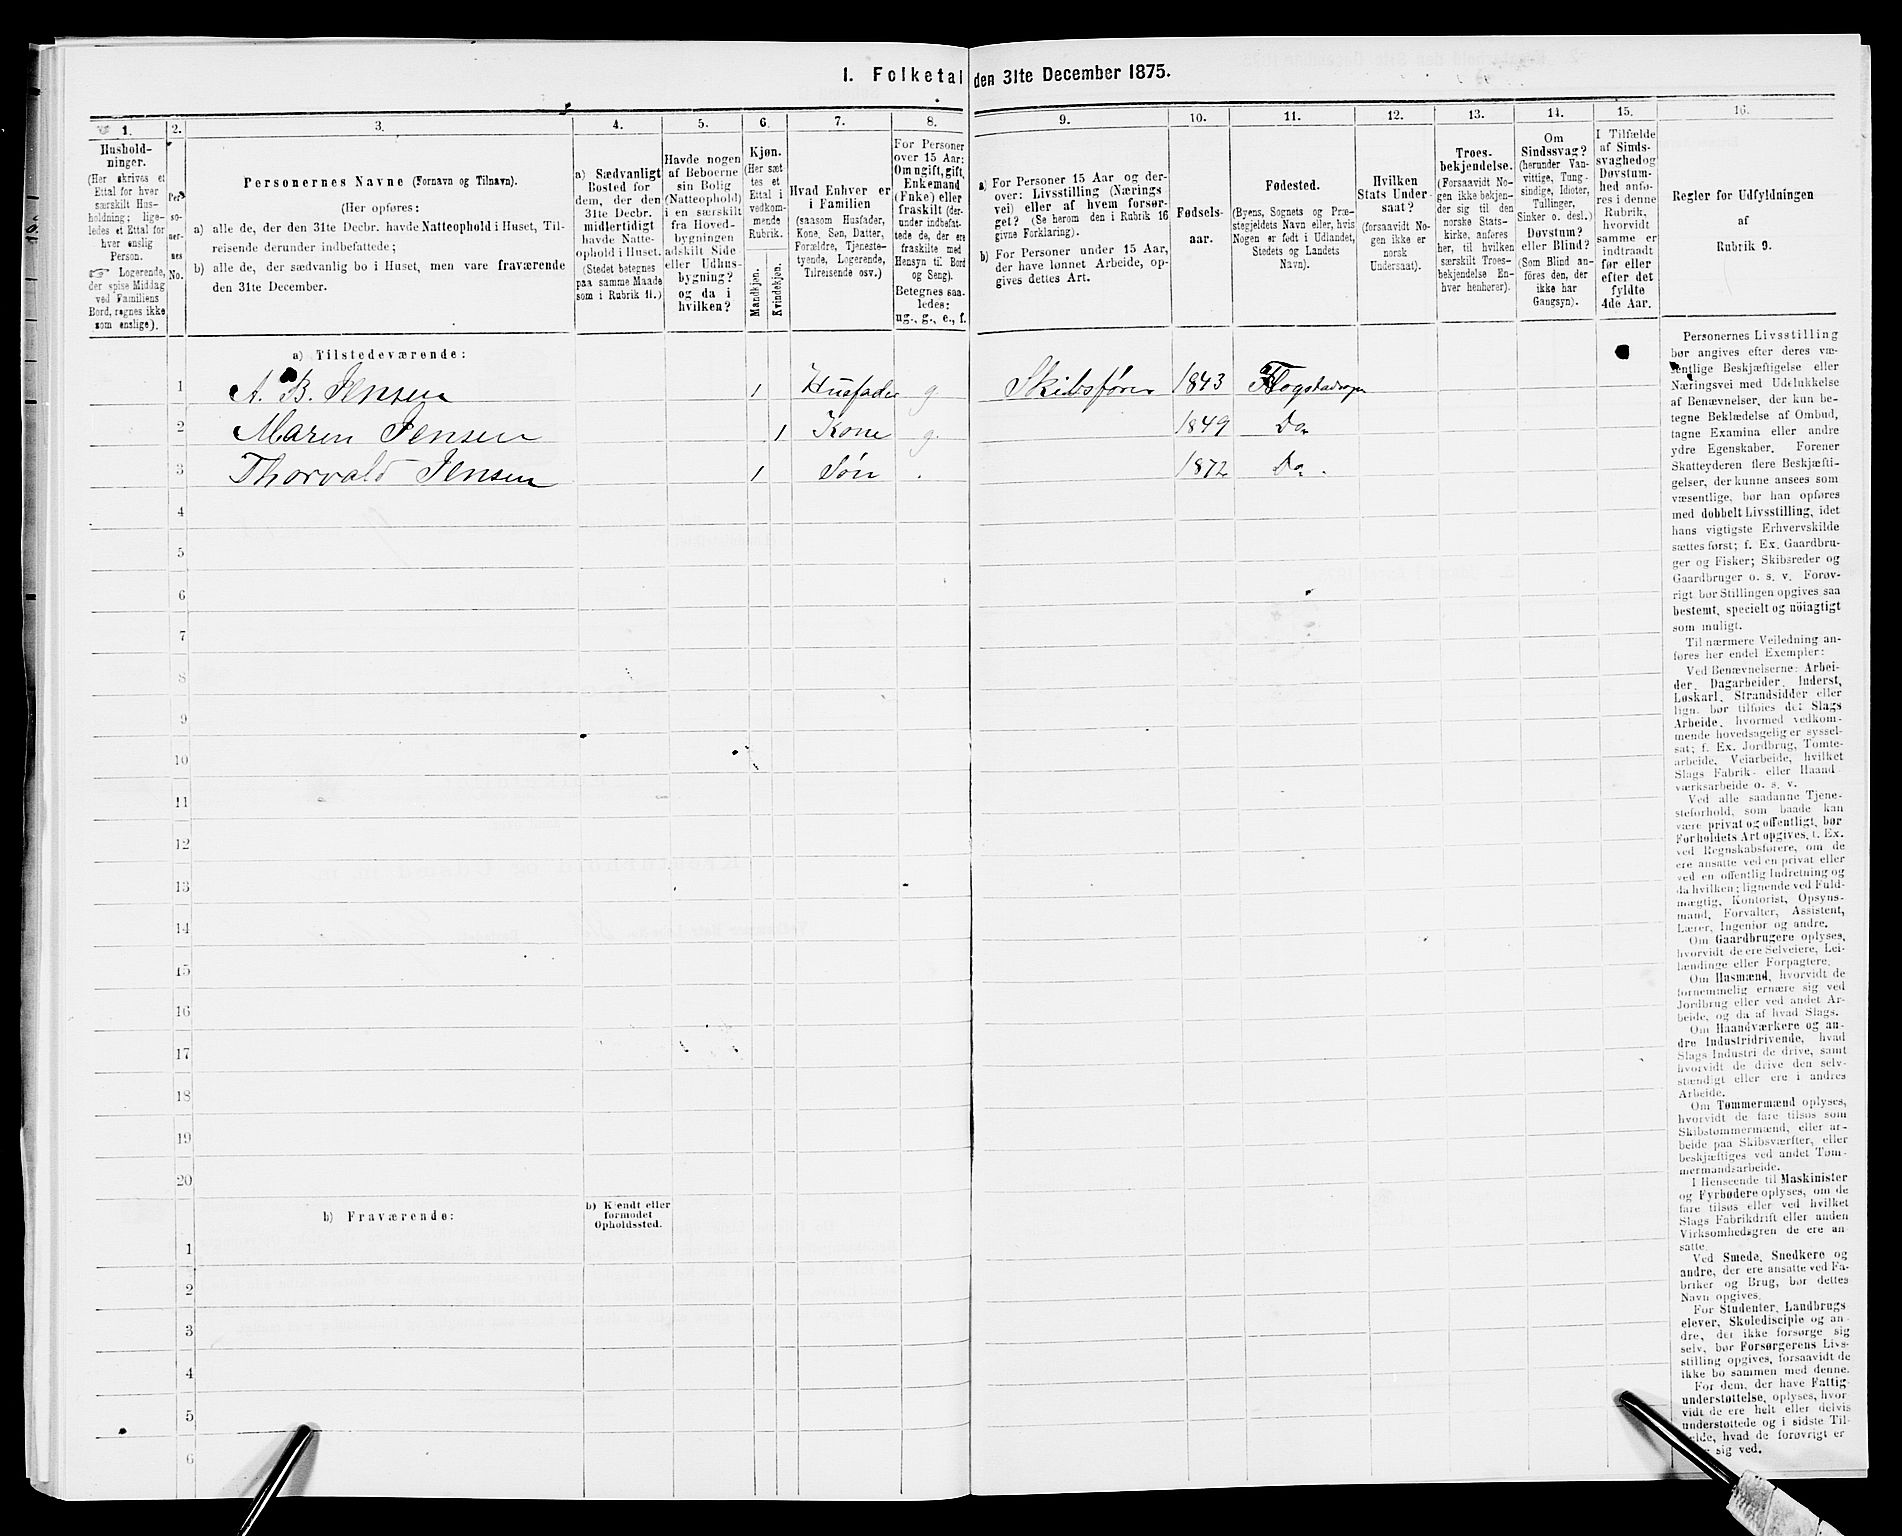 1. Folketal den 31te December 1875.
1.
2.
3.
4.
5.
6.
7.
8.
9.
10.
11.
12.
13.
14.
15.
16.
Hushold-
ninger.
(Her skrives et
Ettal for hver
særskilt Hus-
holdning; lige-
ledes et Ettal for
hver enslig
Person.
☞ Logerende,
der spise Middag
ved Familiens
Bord, regnes ikke
som enslige).
Per-
so-
ner-
nes
No.
Personernes Navne (Fornavn og Tilnavn).
(Her opføres:
a) alle de, der den 31te Decbr. havde Natteophold i Huset, Til-
reisende derunder indbefattede;
b) alle de, der sædvanlig bo i Huset, men vare fraværende
den 31te December.
a) Sædvanligt
Bosted for
dem, der den
31te Decbr.
midlertidigt
havde Natte-
ophold i Huset.
(Stedet betegnes
paa samme Maade
som i Rubrik 11.)
Havde nogen
af Beboerne
sin Bolig
(Natteophold)
i en særskilt
fra Hoved-
bygningen
adskilt Side
eller Udhus-
bygning?
og da i
hvilken?
Kjøn.
(Her sæt
tes et
Ettal i
vedkom-
mende
Rubrik.
Mandkjøn.
Kvindekjøn.
Hvad Enhver er
i Familien
(saasom Husfader,
Kone, Søn, Datter,
Forældre, Tjeneste-
tyende, Logerende,
Tilreisende osv.)
For Personer
over 15 Aar:
Om ugift, gift,
Enkemand
(Enke) eller
fraskilt (der-
under indbefat-
tede de, der ere
fraskilte med
Hensyn til Bord
og Seng).
Betegnes saa-
ledes:
ug., g., e., f.
a) For Personer 15 Aar og der-
over: Livsstilling (Nærings
vei) eller af hvem forsør-
get? (Se herom den i Rubrik 16
givne Forklaring).
b) For Personer under 15 Aar,
der have lønnet Arbeide, op-
gives dettes Art.
Fødsels-
aar.
Fødested.
(Byens, Sognets og Præ-
stegjeldets Navn eller, hvis
Nogen er født i Udlandet,
Stedets og Landets
Navn).
Hvilken
Stats Under-
saat?
(forsaavidt No-
gen ikke er
norsk
Undersaat).
Troes-
bekjendelse.
(Forsaavidt No-
gen ikke bekjen-
der sig til den
norske Stats-
kirke, anføres
her, til hvilken
særskilt Troes-
bekjendelse En-
hver henhører).
Om
Sindssvag?
(herunder Van-
vittige, Tung-
sindige, Idioter,
Tullinger,
Sinker o. desl.)
Døvstum?
eller Blind?
(Som Blind an-
føres den, der
ikke har
Gangsyn).
I Tilfælde
af Sinds-
svaghed og
Døvstum-
hed anfø-
res i denne
Rubrik,
hvorvidt
samme er
indtraadt
før eller
efter det
fyldte
4de Aar.
Regler for Udfyldningen
af
Rubrik 9.
a) Tilstedeværende:
1 A. B. Jensen 1 Husfader g Skibsfører 1843
2 Maren Jensen 1 Kone g. 1849 Do
3 Thorvald Jensen 1 Søn . 1872 Do.
4
5
6
7
8
9
10
11
12
13
14
15
16
17
18
19
20
b) Fraværende:
b) Kjendt eller
formodet
Opholdssted.
1
2
3
4
5
6
Personernes Livsstilling
bør angives efter deres væ-
sentlige Beskjæftigelse eller
Næringsvei med Udelukkelse
af Benævnelser, der kun be-
tegne Beklædelse af Ombud,
tagne Examina eller andre
ydre Egenskaber. Forener
Skatteyderen flere Beskjæfti-
gelser, der kunne ansees som
væsentlige, bør han opføres
med dobbelt Livsstilling, idet
hans vigtigste Erhvervskilde
sættes først; f. Ex. Gaardbru-
ger og Fisker; Skibsreder og
Gaardbruger o. s. v. Forøv-
rigt bør Stillingen opgives saa
bestemt, specielt og nöiagtigt
som muligt.
Til nærmere Veiledning an-
føres her endel Exempler:
Ved Benævnelserne: Arbei-
der, Dagarbeider, Inderst,
Løskarl, Strandsidder eller
lign. bør tilføies det Slags
Arbeide, hvormed vedkom-
mende hovedsagelig er syssel-
sat; f. Ex. Jordbrug, Tomte-
arbeide, Veiarbeide, hvilket
Slags Fabrik- eller Haand
værksarbeide o. s. v.
Ved alle saadanne Tjene-
steforhold, som baade kan
være privat og offentligt, bør
Forholdets Art opgives, f. Ex.
ved Regnskabsførere, om de
ere ansatte ved en privat eller
ved en offentlig Indretning og
da hvilken; lignende ved Fuld-
mægtig, Kontorist, Opsyns-
mand, Forvalter, Assistent,
Lærer, Ingeniør og andre.
Om Gaardbrugere oplyses,
hvorvidt de ere Selveiere, Lei-
lændinge eller Forpagtere.
Om Husmænd, hvorvidt de
fornemmelig ernære sig ved
Jordbrug eller ved andet Ar-
beide, og da af hvad Slags.
Om Haandværkere og an-
dre Industridrivende, hvad
Slags Industri de drive, samt
hvorvidt de drive den selv-
stændigt eller ere i andres
Arbeide.
Om Tømmermænd oplyses,
hvorvidt de fare tilsøs som
Skibstømmermænd, eller ar-
beide paa Skibsværfter, eller
beskjæftiges ved andet Tøm-
mermandsarbeide.
I Henseende til Maskinister
og Fyrbødere oplyses, om de
fare tilsøs eller ved hvilket
Slags Fabrikdrift eller anden
Virksomhedsgren de ere an
satte.
Ved Smede, Snedkere og
andre, der ere ansatte ved Fa-
briker og Brug, bør dettes
Navn opgives.
For Studenter, Landbrugs
elever, Skoledisciple og an
dre, der ikke forsørge sig
selv, bør Forsørgerens Livs-
stilling opgives, forsaavidt de
ikke bo sammen med denne.
For dem, der have Fattig-
understøttelse, oplyses, hvor-
vidt de ere helt eller delvis
understøttede og i sidste Til-
fælde, hvad de forøvrigt er
sig ved.